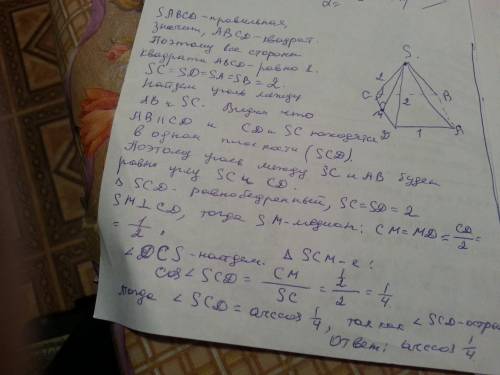 2=
SABCD-правильная,
значит, ABCD-квадрат.
Поэтому все стороны
квадрата ABCD-равно 1.
SC=SD=SA=SB=2.
Найдем угол между
AB и SC. Видим что
AB||CD и CD и SC находятся
в одной плоскости (SCD).
Поэтому угол между SC и AB будет
равно углу SC и CD.
Δ SCD- равнобедренный, SC=SD=2
SM⊥CD, тогда SM-медиан: CM=MD=CD/2=
=1/2,
∠DCS-найдем. Δ SCM-е:
cos∠SCD= CM/SC = 1/2/2 = 1/4
тогда ∠SCD=arccos 1/4, так как ∠SCD-остр
Ответ: arccos 1/4
S
2
2
C
B
D
1